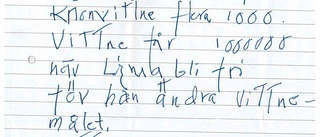 Kronvittne flera 1000.
Vittne får 1000000
när Linua bli fri
för han ändra vittne-
målet.